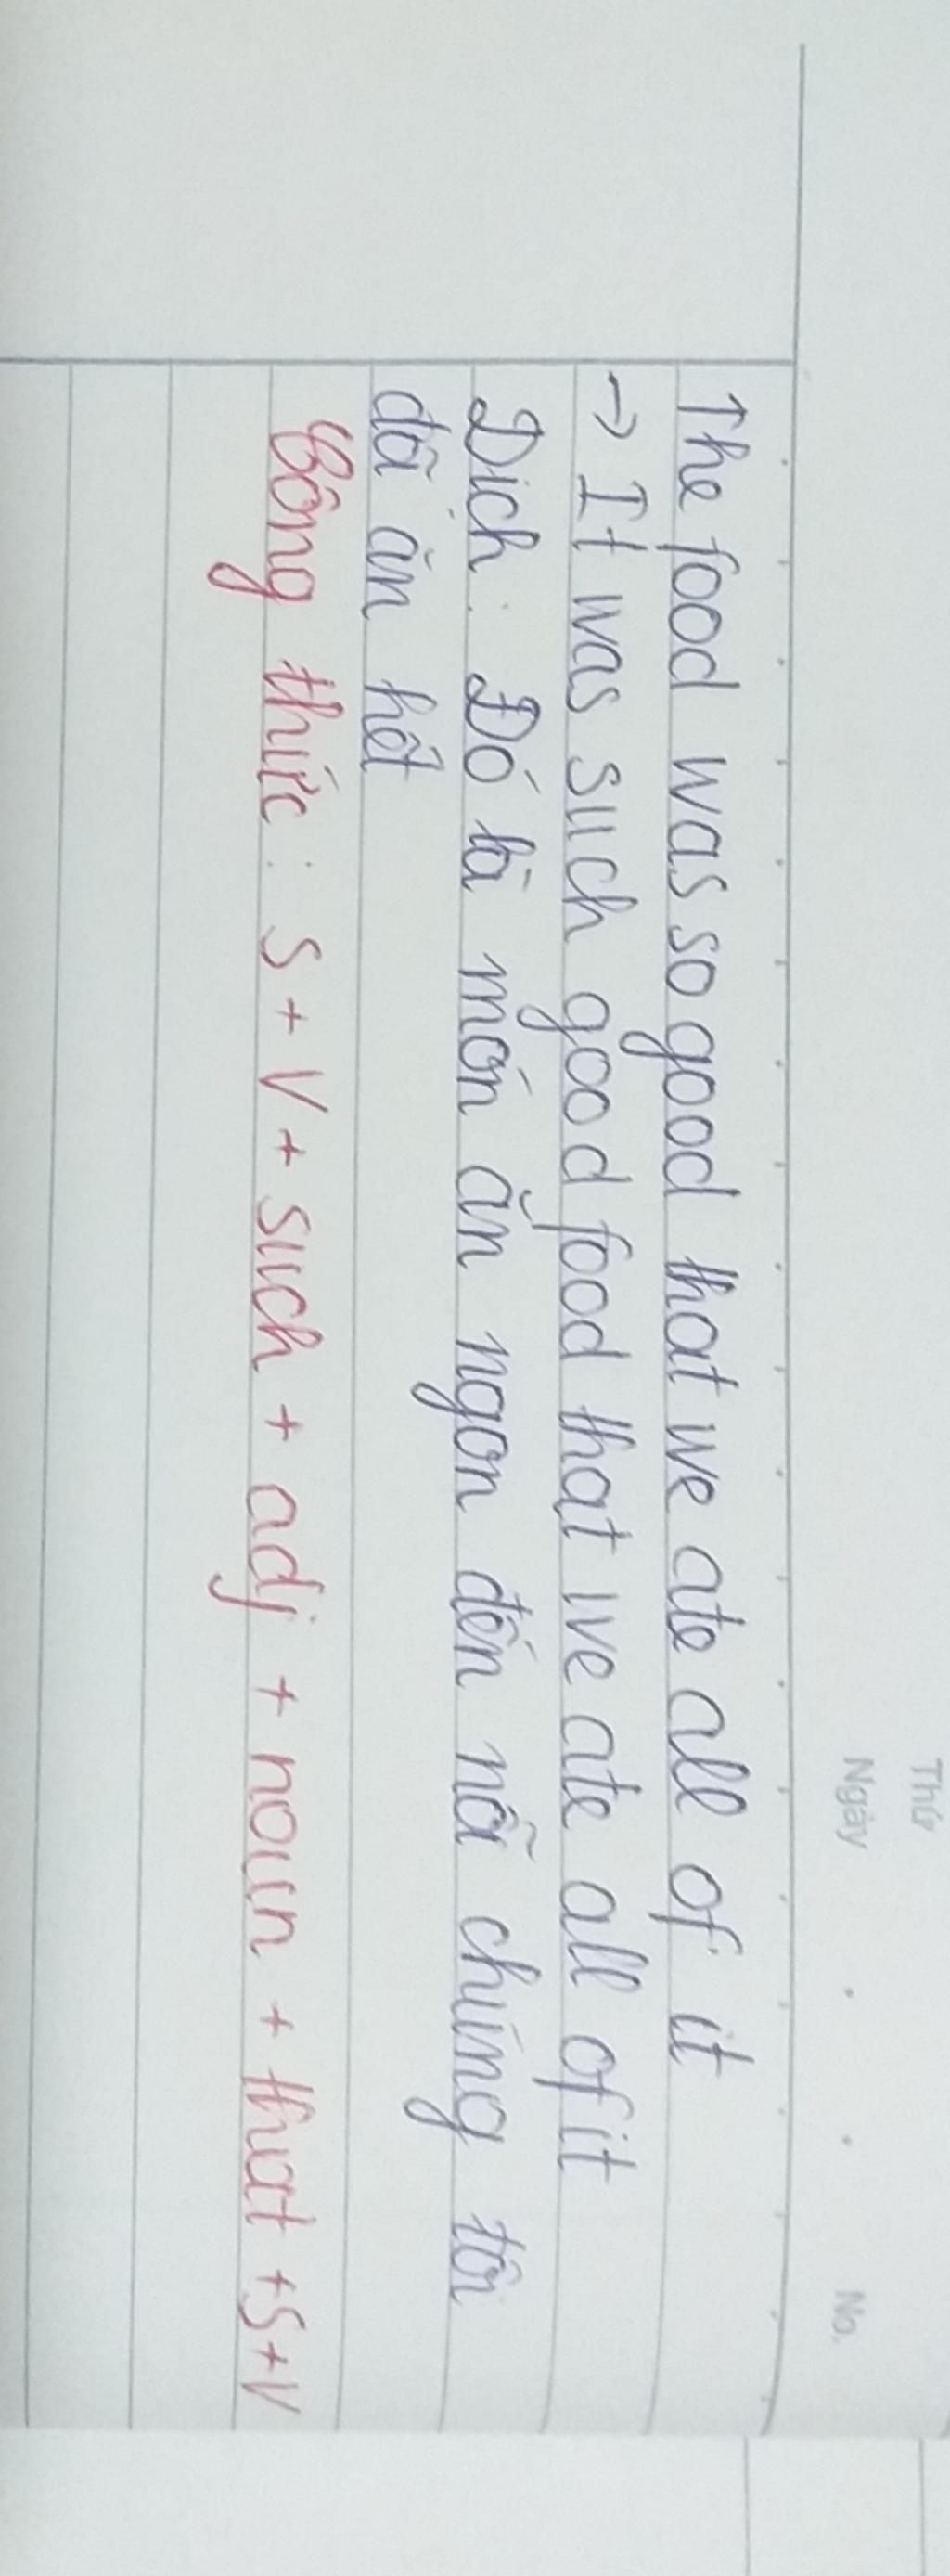 Thứ
Ngày . . No.
The food was so good that we ate all of it
→ It was such good food that we ate all of it
Dịch : Đó là món ăn ngon đến nỗi chúng tôi
đã ăn hết
Công thức : S + V + such + adj + noun + that + S + V